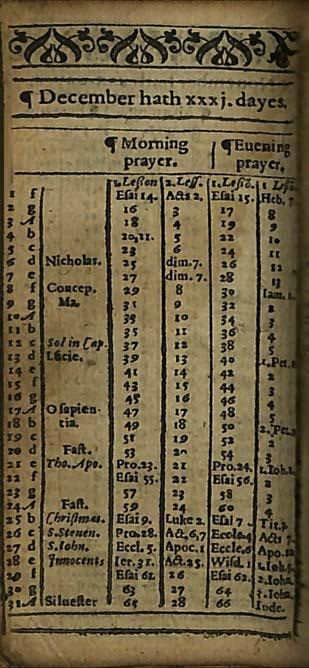 ¶ December hath xxxj. dayes.
¶ Morning prayer. ¶ Euening prayer,
1. Lesson 2. Less. 1. Lesso.
1 f Esai 14. Acts 2. Esai 15. Heb. 7
2 g 16 3 17 8
3 A 18 4 19 9
4 b 20,21. 5 22 10
5 c 23 6 24 11
6 d Nicholas. 25 dim. 7. 26 12
7 e 27 dim. 7. 28 13
8 f Concep. 29 8 30 Iam. 1.
9 g Ma. 31 9 32 2
10 A 33 10 34 3
11 b 35 11 36 4
12 c Sol in Cap. 37 12 38 5
13 d Lucie. 39 13 40 1. Pet.
14 e 41 14 42 2
15 f 43 15 44 3
16 g 45 16 46 4
17 A O sapien- 47 17 48 5
18 b tia. 49 18 50 2. Pet.
19 c 51 19 52 2
20 d Fast. 53 20 54 3
21 e Tho. Apo. Pro. 23. 21 Pro. 24. 1. Ioh.
22 f Esai 55. 22 Esai 56. 2
23 g 57 23 58 3
24 A Fast. 59 24 60 4
25 b Christmas. Esai 9. Luke 2. Esai 7 Tit. 3.
26 c S. Steuen. Pro. 28. Act. 6,7 Eccle. 4 Acts 7
27 d S. Iohn. Eccl. 5. Apoc. 1 Eccle. 6 Apo. 22
28 e Innocents Ier. 31. Act. 25. Wisd. 1 1. Ioh. 5.
29 f Esai 61. 26 Esai 62. 2. Iohn.
30 g 63 27 64 3. Iohn.
31 A Siluester 65 28 66 Iude.